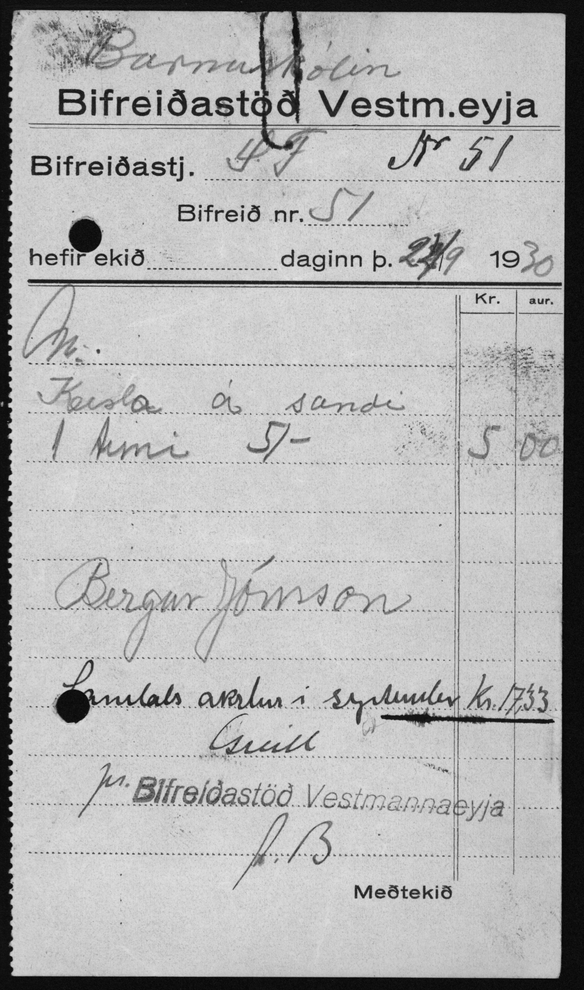 Barnaskólin
Bifreiðastöð Vestm.eyja
Bifreiðastj. Nr 51
Bifreið nr. 51
hefir ekið daginn þ. /9 1930
Kr. aur.
Keisla á sandi
1 tími 5/- 5 00
Bergur Jónsson
Samtals akstur í september Kr. 17,33
Greitt
pr. Bifreiðastöð Vestmannaeyja
J. B
Meðtekið